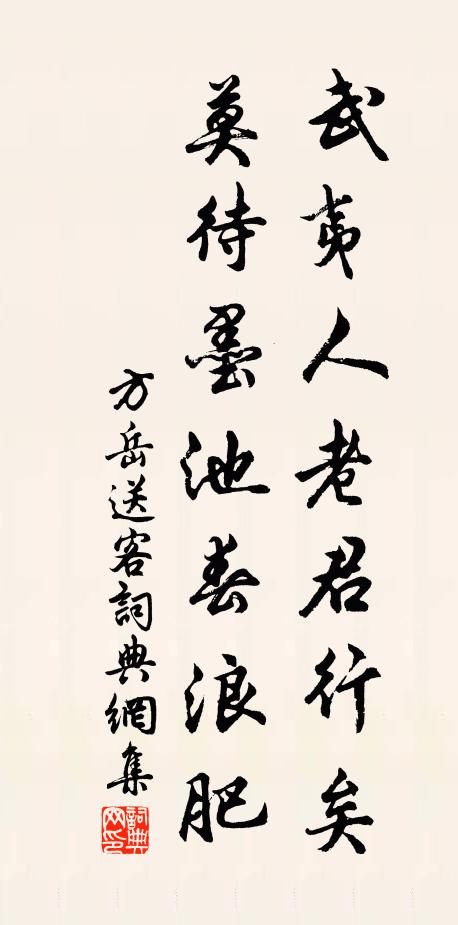 武夷人老君行矣
莫待墨池春浪肥
方岳送客詞典網集
詞典网印